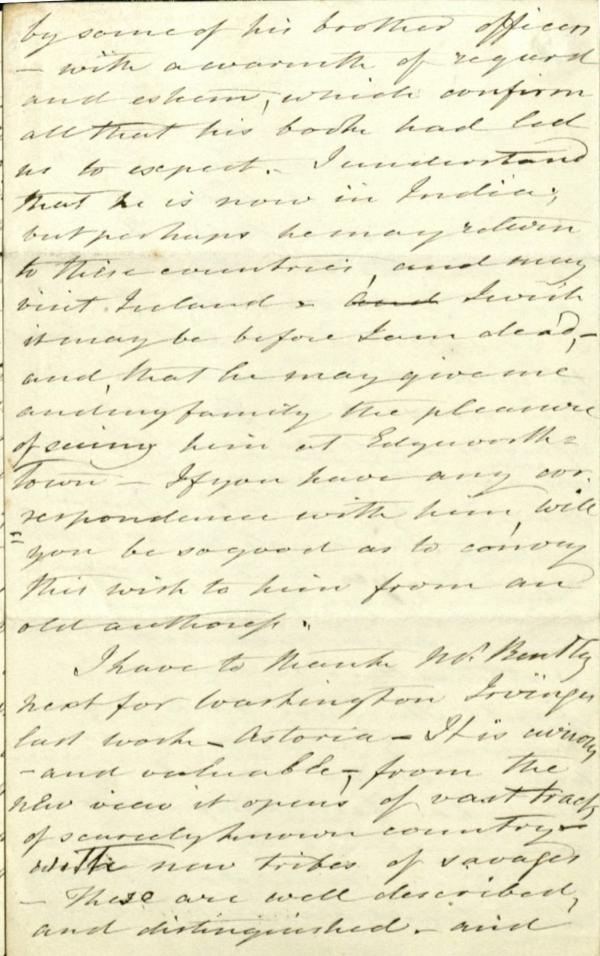 by some of his brother officers
— with a warmth of regard
and esteem, which confirm
all that his book had led
us to expect. I understand
that he is now in India;
but perhaps he may return
to these countries, and may
visit Ireland – and I wish
it may be before I am dead,–
and, that he may give me
and my family the pleasure
of seeing him at Edgeworth=
Town – If you have any cor
=respondence with him, will
you be so good as to convey
this wish to him from an
old authoress.
I have to thank Mr. Bentley
next for Washington Irvings
last work – Astoria – It is curious
– and valuable –, from the
new view it opens of vast tracts
of scarcely known country –
with new tribes of savages
– These are well described,
and distinguished. – and